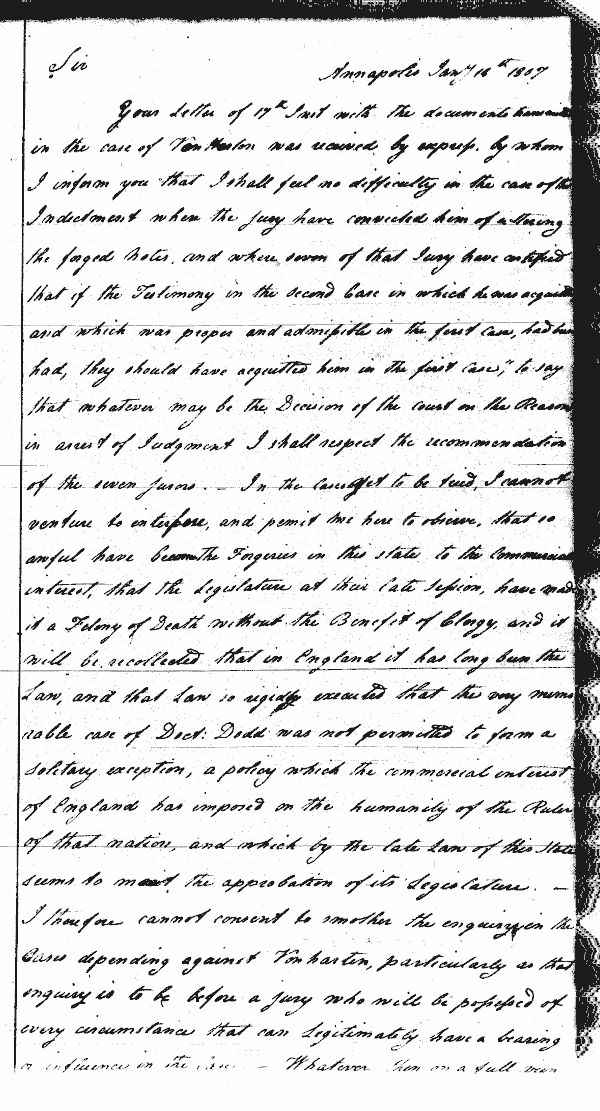 Sir
Annapolis Jany 18th 1807
Your Letter of 17th Inst with the documents
in the case of Vonharten was received by express. by whom
I inform you that I shall feel no difficulty in the case of the
Indictment when the Jury have convicted him of uttering
the forged Notes, and where seven of that Jury have certified
that if the Testimony in the second Case in which he was acquitted
and which was proper and admissible in the first case, had been
had, they should have acquitted him in the first case", to say
that whatever may be the Decision of the court on the Reasons
in arrest of Judgment I shall respect the recommendation
of the seven jurors. — In the cases yet to be tried, I cannot
venture to interfere, and permit me here to observe, that so
awful have become the Forgeries in this state to the Commercial
interest, that the Legislature at their late Session, have made
it a Felony of Death without the Benefit of Clergy, and it
will be recollected that in England it has long been the
Law, and that Law so rigidly executed that the very memo
rable case of Doct: Dodd was not permitted to form a
solitary exception, a policy which the commercial interest,
of England has imposed on the humanity of the Rulers
of that nation, and which by the late Law of this State
seems to meet the approbation of its Legislature. —
I therefore cannot consent to smother the enquiry in the
Cases depending against Vonharten, particularly as that
enquiry is to be before a jury who will be possessed of
every circumstance that can legitimately have a bearing
or influence in the case. — Whatever then on a full view